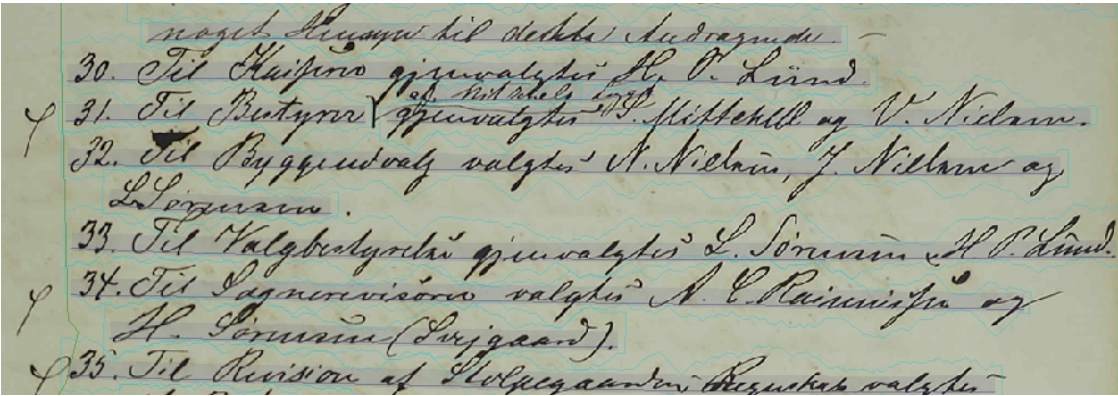 noget Hensyn til dette Andragende. –
30. Til Kasserer gjenvalgtes H. P. Lund.
31. Til Bestyrer gjenvalgtes S. Mittehell og V. Nielsen.
32. Til Byggeudvalg valgtes N. Nielsen, J. Nielsen og
L. Sørensen.
33. Til Valgbestyrelse gjenvalgtes L. Sørensen & H. P. Lund.
34. Til Sognerevisorer valgtes A. C. Rasmussen og
H. Sørensen (Svejgaard).
35. Til Revision af Stolpegaardens Regnskab valgtes